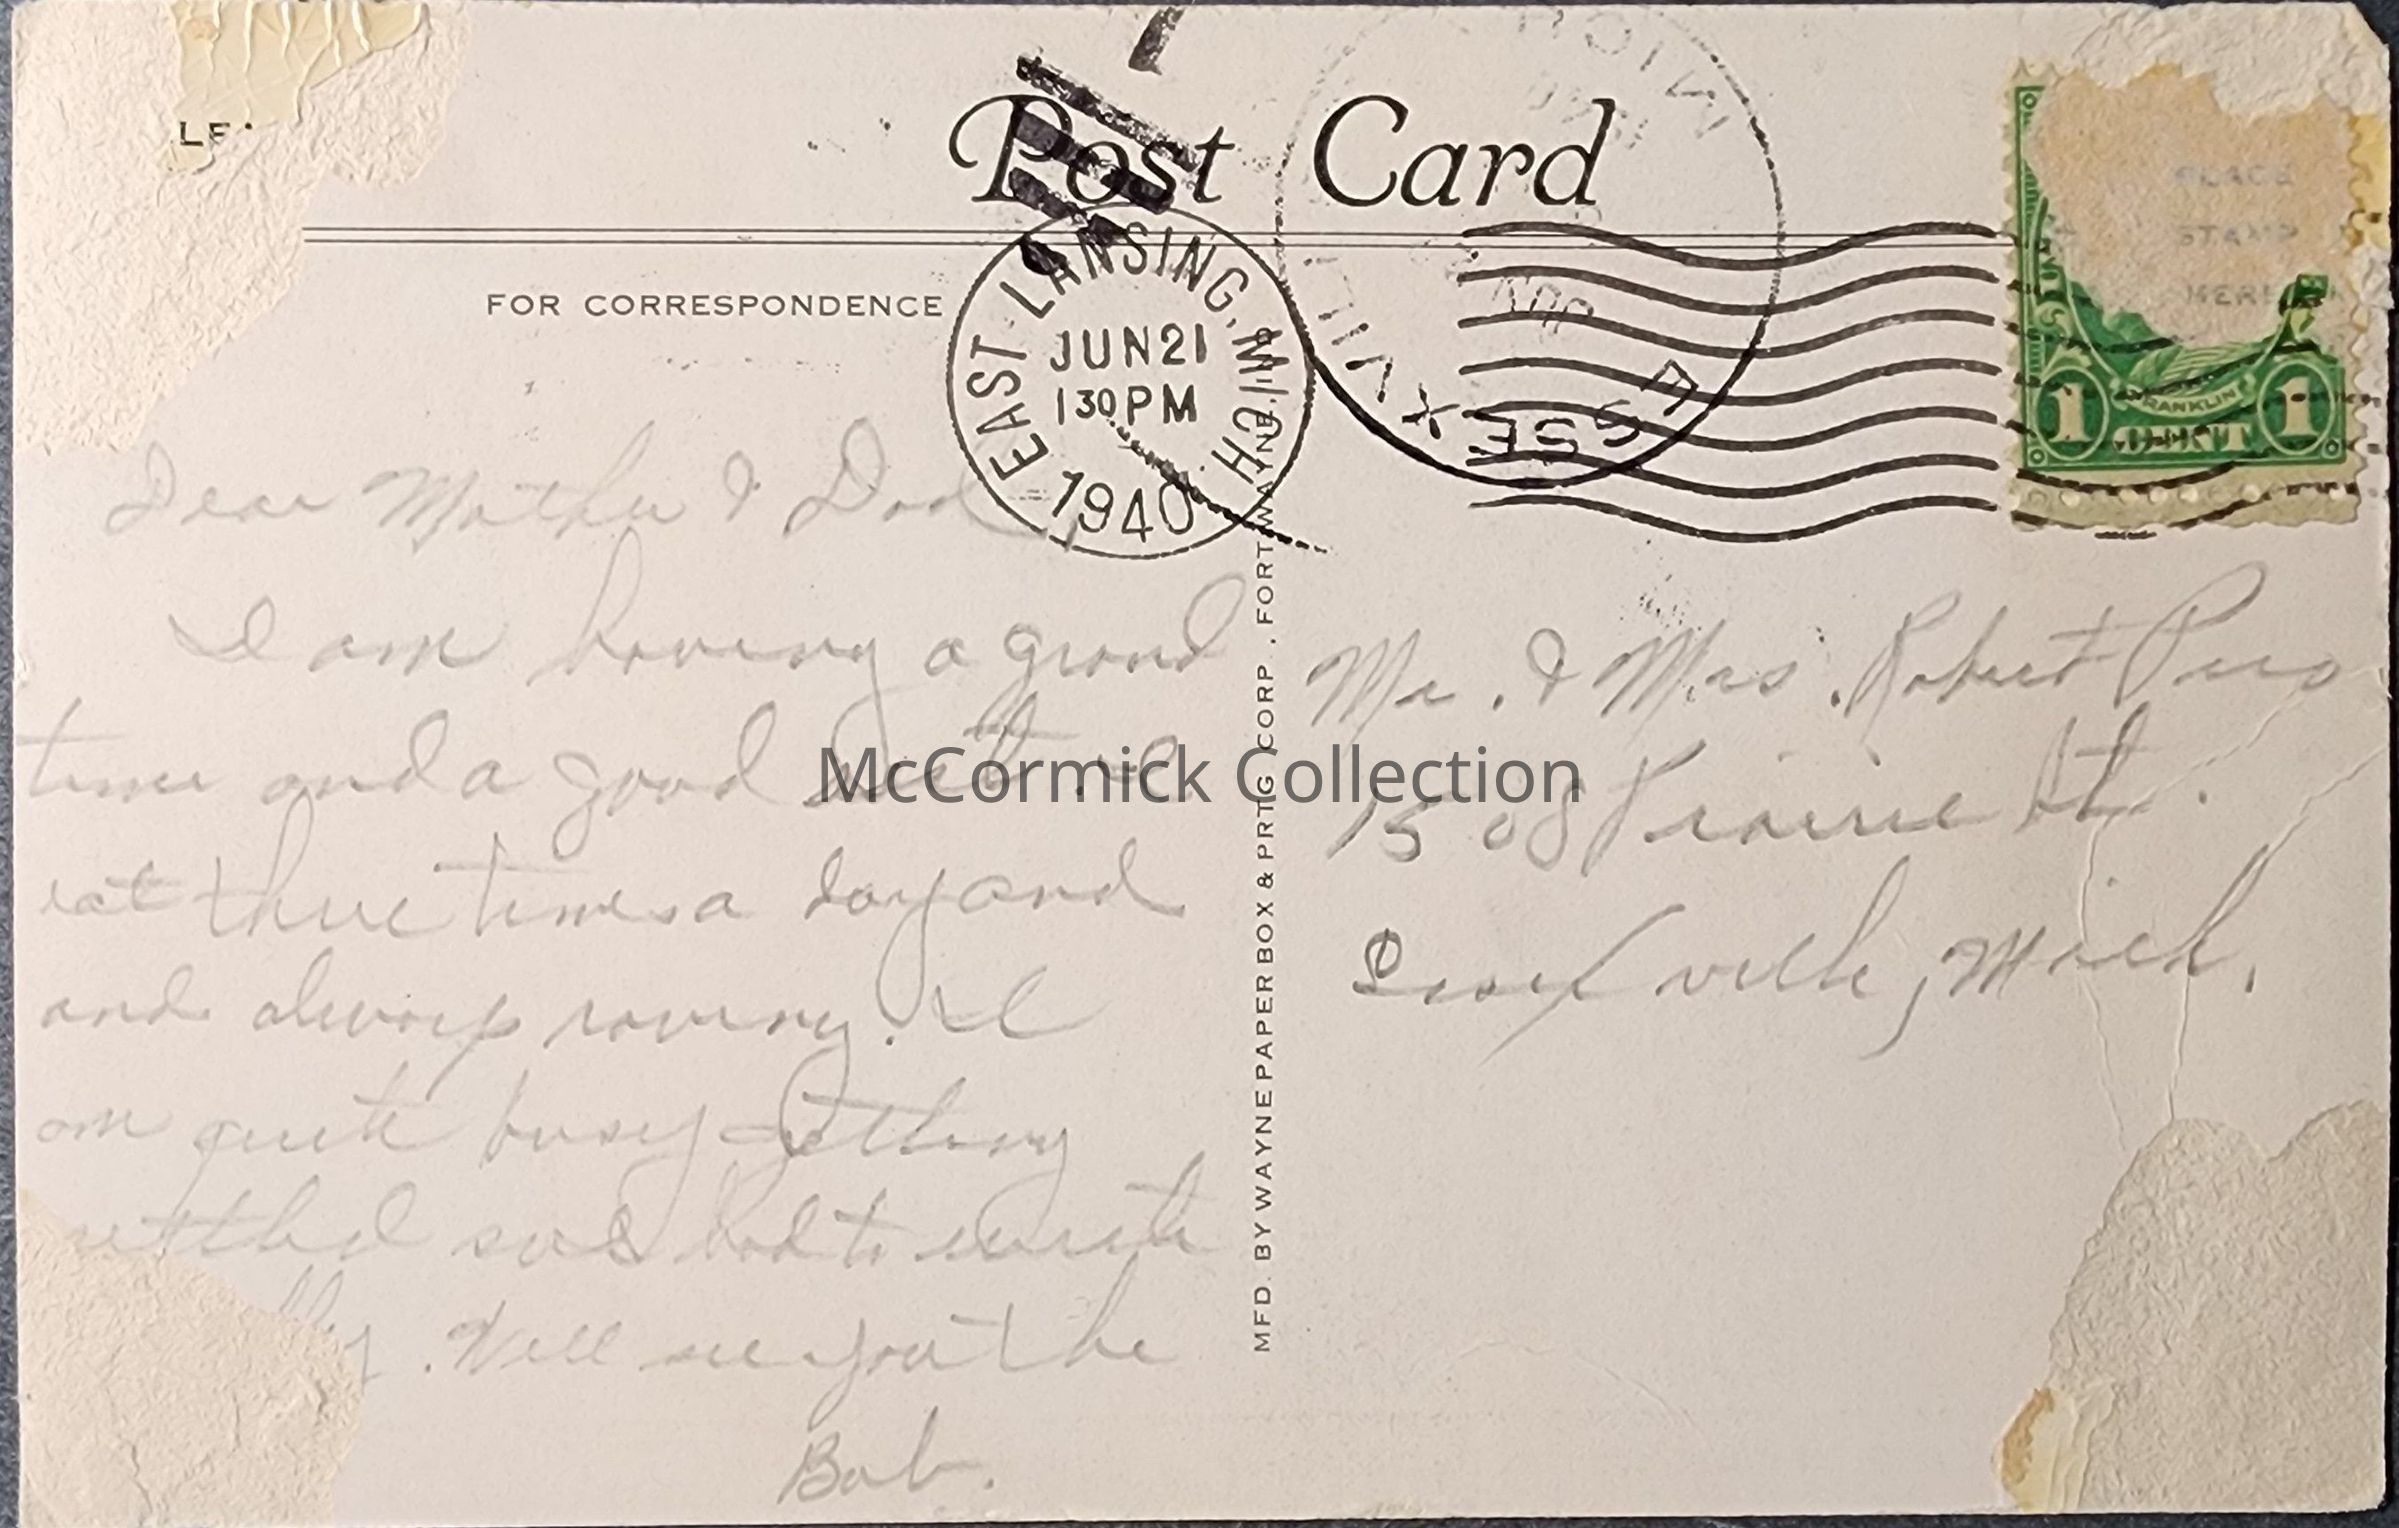 Post Card
FOR CORRESPONDENCE
EAST LANSING, MICH.
JUN 21
1 30 PM
1940
ESSEXVILLE
MICH
JUN
PLACE
STAMP
HERE
FRANKLIN
1 1
Dear Mother & Dad,
I am having a grand
time and a good I
eat three times a day and
and always roving. I
am quite busy getting
settled so had to write
Will see you the
Bob.
Mr. & Mrs. Robert
1508 Prairie St.
Essexville, Mich.
MFD. BY WAYNE PAPER BOX & PRTG CORP., FORT WAYNE, IND
McCormick Collection